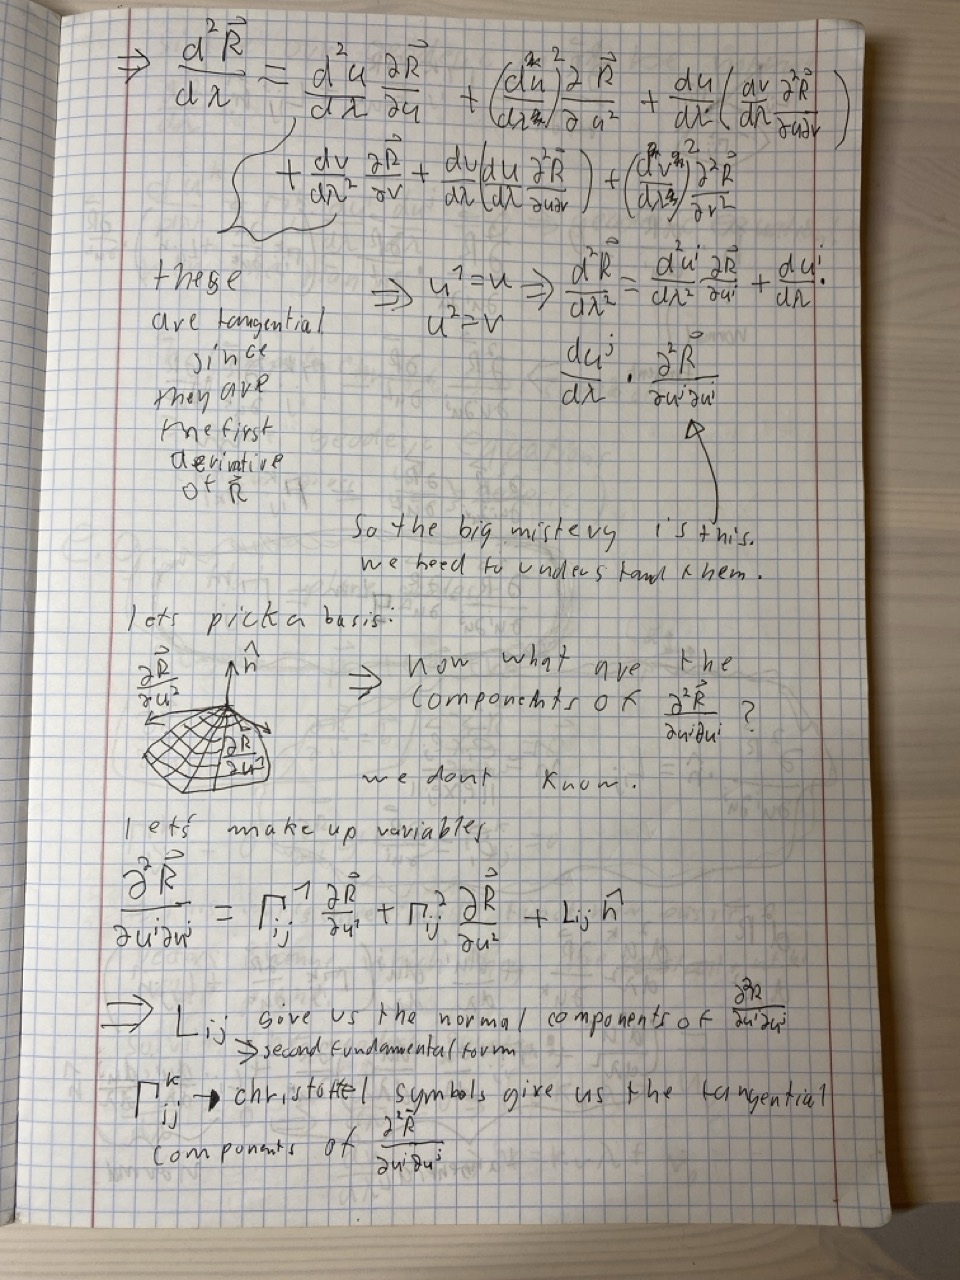 ⇒ d²R⃗/dλ = d²u/dλ ∂R⃗/∂u + (du/dλ)² ∂R⃗/∂u² + du/dλ (dv/dλ ∂²R⃗/∂u∂v)
+ dv/dλ² ∂R⃗/∂v + dv/dλ (du/dλ ∂²R⃗/∂u∂v) + (dv/dλ)² ∂²R⃗/∂v²
these
are tangential
since
they are
the first
derivative
of R⃗
⇒ u¹ = u
u² = v
⇒ d²R⃗/dλ² = d²uⁱ/dλ² ∂R⃗/∂uⁱ + duⁱ/dλ ·
duʲ/dλ · ∂²R⃗/∂uⁱ∂uʲ
So the big mistery is this.
we need to understand them.
lets pick a basis:
∂R⃗/∂u²
n̂
∂R⃗/∂u¹
⇒ now what are the
components of ∂²R⃗/∂uⁱ∂uʲ ?
we dont know.
lets make up variables
∂²R⃗/∂uⁱ∂uʲ = Γ¹ij ∂R⃗/∂u¹ + Γ²ij ∂R⃗/∂u² + Lij n̂
⇒ Lij give us the normal components of ∂²R/∂uⁱ∂uʲ
⇒ second fundamental form
Γᵏij → christoffel symbols give us the tangential
components of ∂²R⃗/∂uⁱ∂uʲ